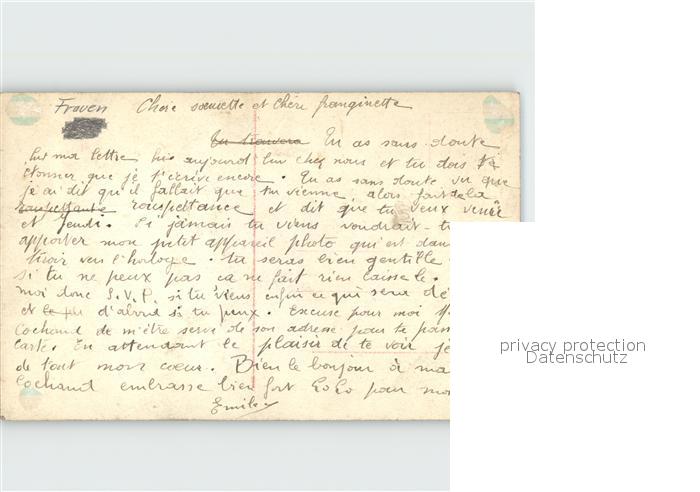 Frauen Chère sœurette et chère franginette
Tu as sans doute
lu ma lettre hier aujourd'hui chez nous et tu dois
étonner que je t'écrive encore. Tu as sans doute vu que
j'ai dit qu'il fallait que tu vienne, alors fait de la
rouspettance et dit que tu veux venir
et Jeudi. Si jamais tu viens voudrait-t
apporter mon petit appareil photo qui est dan
tiroir vers l'horloge. tu seras bien gentille
si tu ne peux pas ca ne fait rien laisse le.
moi donc S.V.P. si tu viens enfin ce qui sera dé
et d'abord si tu peux. Excuse pour moi M
Cochand de m'être servi de son adresse pour te
carte. En attendant le plaisir de te voir je
de tout mon cœur. Bien le bonjour à ma
Cochand embrasse bien fort LoLo pour mo
Emile.
privacy protection
Datenschutz